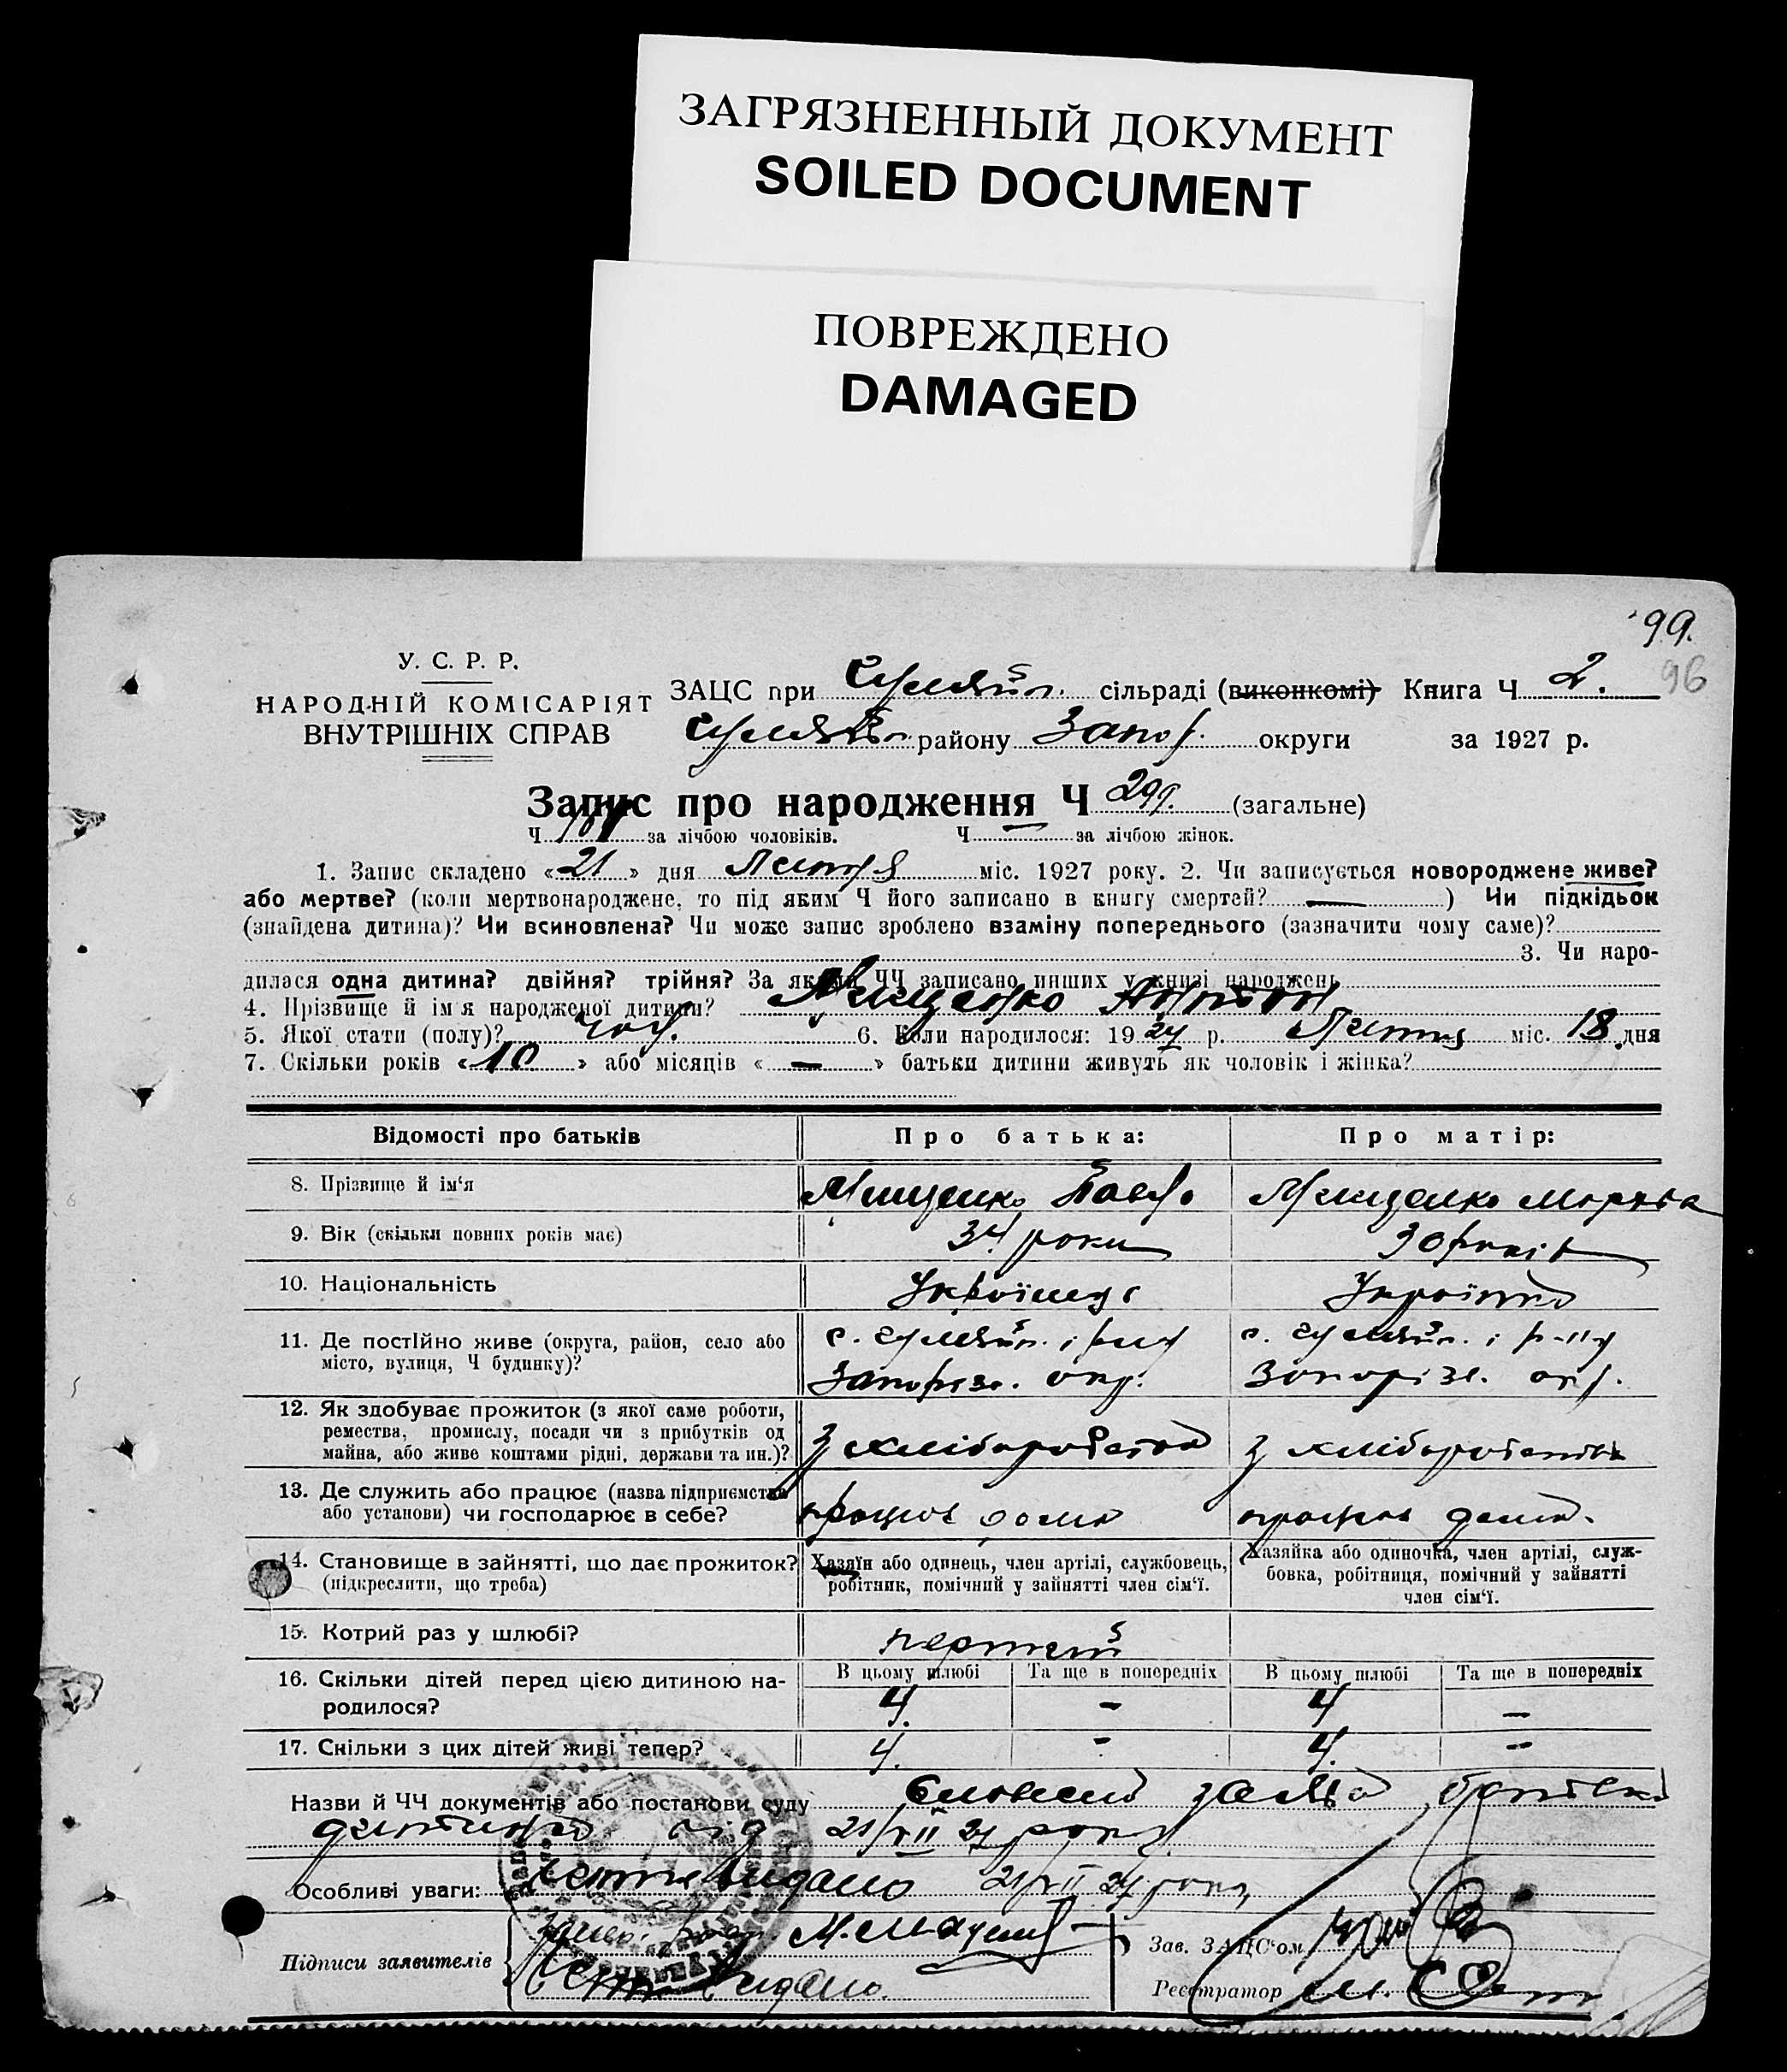 ЗАГРЯЗНЕННЫЙ ДОКУМЕНТ
SOILED DOCUMENT
ПОВРЕЖДЕНО
DAMAGED
99.
96
У. С. Р. Р.
НАРОДНІЙ КОМІСАРІЯТ
ВНУТРІШНІХ СПРАВ
ЗАЦС при Гуляйп. сільраді (виконкомі) Книга Ч 2.
Гуляйп. району Запор. округи за 1927 р.
Запис про народження Ч 299. (загальне)
Ч за лічбою чоловіків. Ч — за лічбою жінок.
1. Запис складено «21» дня Липня міс. 1927 року. 2. Чи записується новороджене живе?
або мертве? (коли мертвонароджене, то під яким Ч його записано в книгу смертей? — ) Чи підкідьок
(знайдена дитина)? Чи всиновлена? Чи може запис зроблено взаміну попереднього (зазначити чому саме)?
3. Чи наро-
дилася одна дитина? двійня? трійня? За якими ЧЧ записано инших у книзі народжень
4. Прізвище й ім'я народженої дитини? Мищенко Антон
5. Якої стати (полу)? чол. 6. Коли народилося: 1927 р. Липня міс. 18 дня
7. Скільки років «10» або місяців «—» батьки дитини живуть як чоловік і жінка?
Відомості про батьків Про батька: Про матір:
8. Прізвище й ім'я Мищенко Павло Мищенко
9. Вік (скільки повних років має) 34 роки 30 років
10. Національність Українець Українка
11. Де постійно живе (округа, район, село або
місто, вулиця, Ч будинку)?
с. Гуляйп. і р-ну с. Гуляйп. і р-ну
Запорізь. окр. Запорізь. окр.
12. Як здобуває прожиток (з якої саме роботи,
ремества, промислу, посади чи з прибутків од
майна, або живе коштами рідні, держави та ин.)?
З хліборобства З хліборобства
13. Де служить або працює (назва підприємства
або установи) чи господарює в себе?
працює дома працює дома.
14. Становище в зайнятті, що дає прожиток?
(підкреслити, що треба)
Хазяїн або одинець, член артілі, службовець,
робітник, помічний у зайнятті член сім'ї.
Хазяйка або одиночка, член артілі, служ-
бовка, робітниця, помічний у зайнятті
член сім'ї.
15. Котрий раз у шлюбі? перший
16. Скільки дітей перед цією дитиною на-
родилося?
В цьому шлюбі Та ще в попередніх В цьому шлюбі Та ще в попередніх
4. – 4 –
17. Скільки з цих дітей живі тепер? 4. - 4. --
Назви й ЧЧ документів або постанови суду Словесна заява батька
дитини від 21/VII 27 року.
Особливі уваги: видано 21/VII 27 року
Підписи заявителів
видано.
Зав. ЗАЦС'ом
Реєстратор